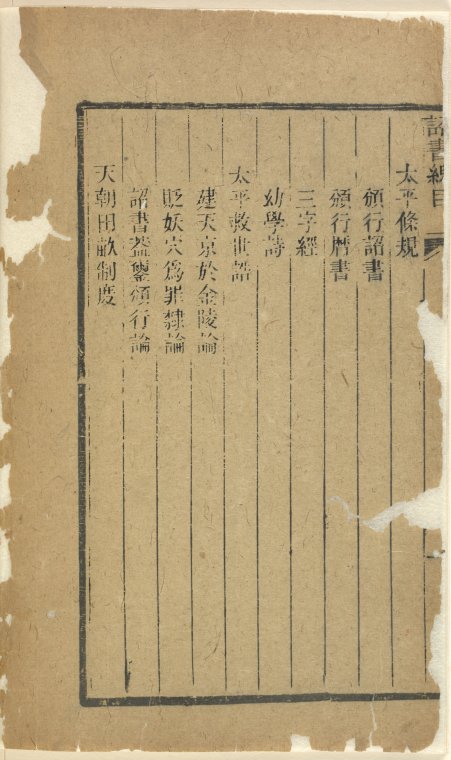 詔書總目
太平條規
頒行詔書
頒行曆書
三字經
幼學詩
太平救世誥
建天京於金陵論
貶妖穴爲罪隸論
詔書葢璽頒行論
天朝田畝制度